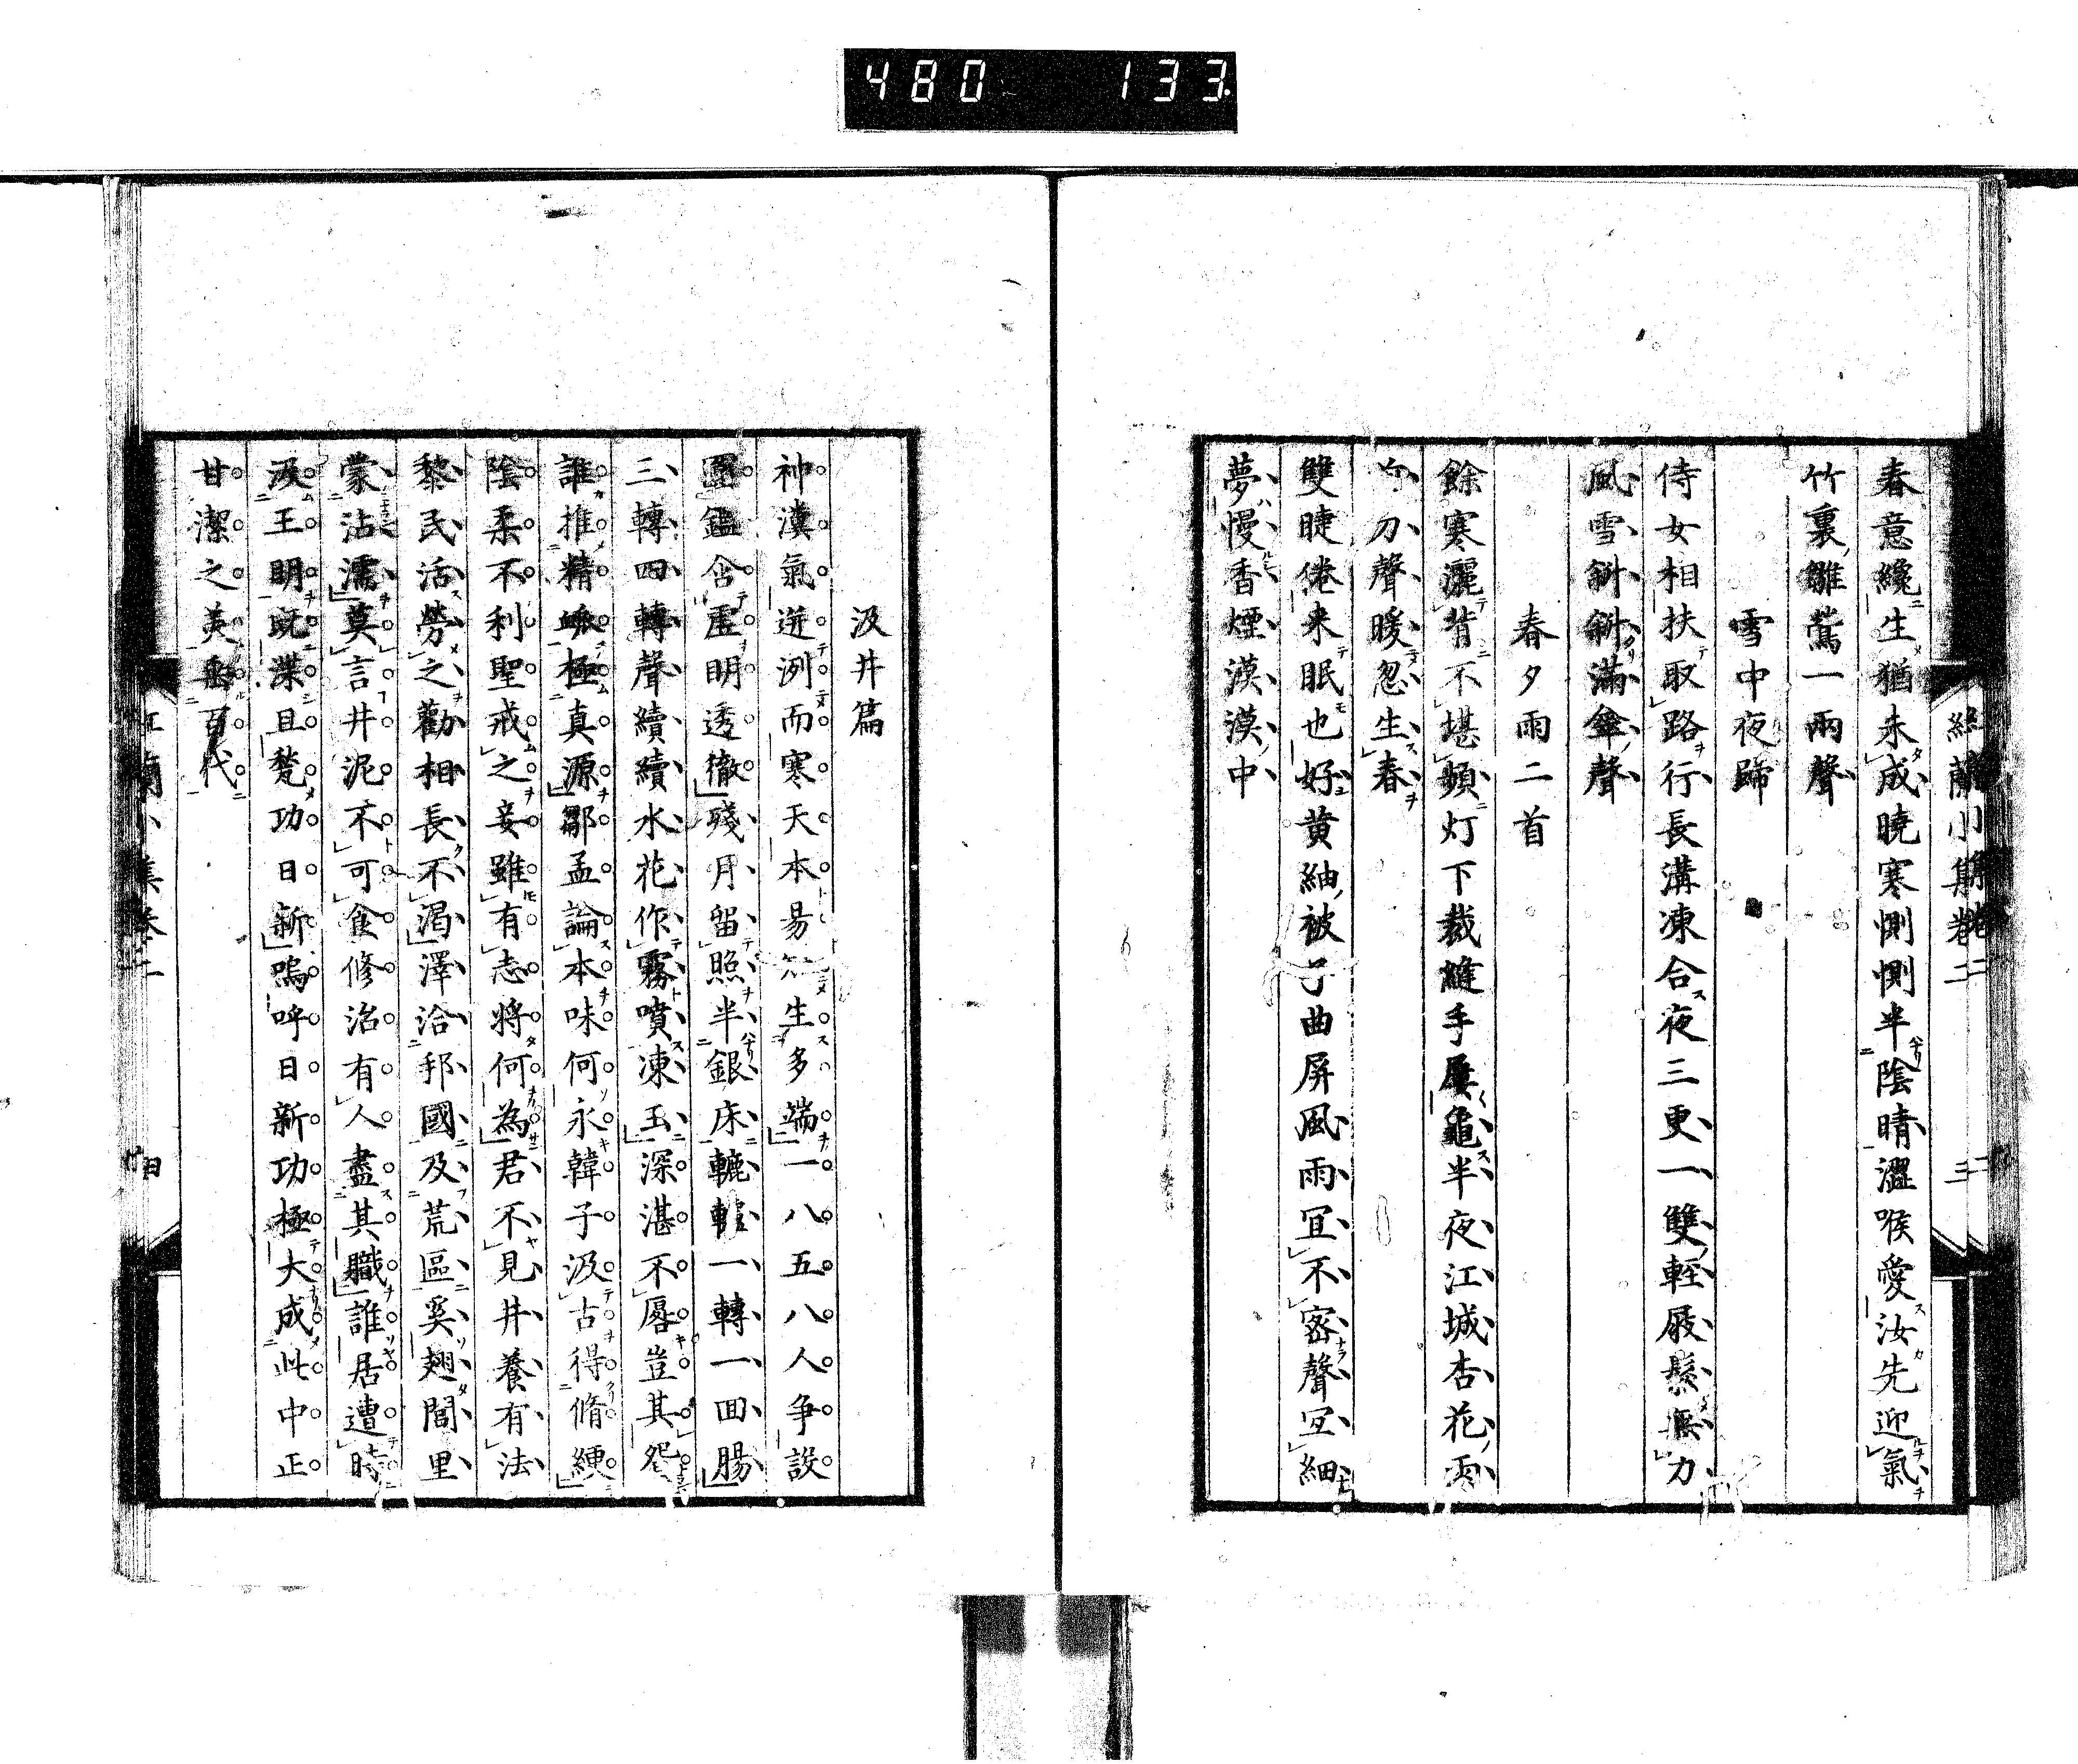 480 133
紅蘭小集卷二
三
春意纔生猶未成曉寒惻惻半陰晴澀喉愛汝先迎氣
竹裏雛鶯一兩聲
雪中夜歸
侍女相扶取路行長溝凍合夜三更一雙輕屐鬆無力
風雪斜斜滿傘聲
春夕雨二首
餘寒灑背不堪頻灯下裁縫手屢龜半夜江城杏花雨
刀聲暖忽生春
雙睫倦来眠也好黄紬被子曲屏風雨冝不密聲冝細
夢慢香煙漠漠中
汲井篇
神瀵氣迸洌而寒天本昜生多端一八五八人争設
靈鑑含虛明透徹殘月留照半銀床轆轤一轉一回腸
三轉四轉聲續續水花作霧噴凍玉深湛不屑豈其怨
誰推精極真源鄒孟論本味何永韓子汲古得脩綆
陰柔不利聖戒之妾雖有志將何為君不見井養有法
黎民活勞之勸相長不渴澤洽邦國及荒區奚翅閭里
蒙沾濡莫言井泥不可食修治有人盡其職誰居遭時
汲王明既渫且甃功日新嗚呼日新功極大成此中正
甘潔之美百代
紅蘭小集卷二
四